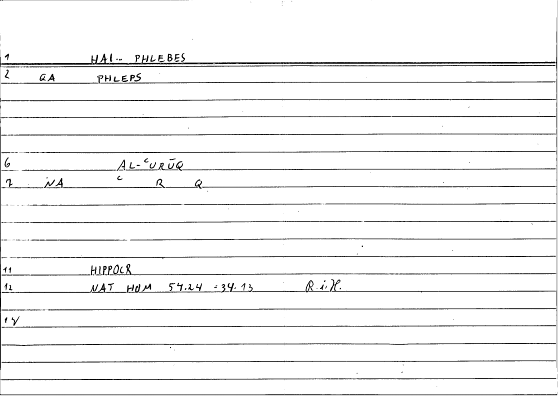 1 HAI-- PHLEBES
2 GA PHLEPS
6 AL-ʿURŪQ
7 NA ʿ R Q
11 HIPPOCR
12 NAT HOM 54.24 =34.13 R.i.H.